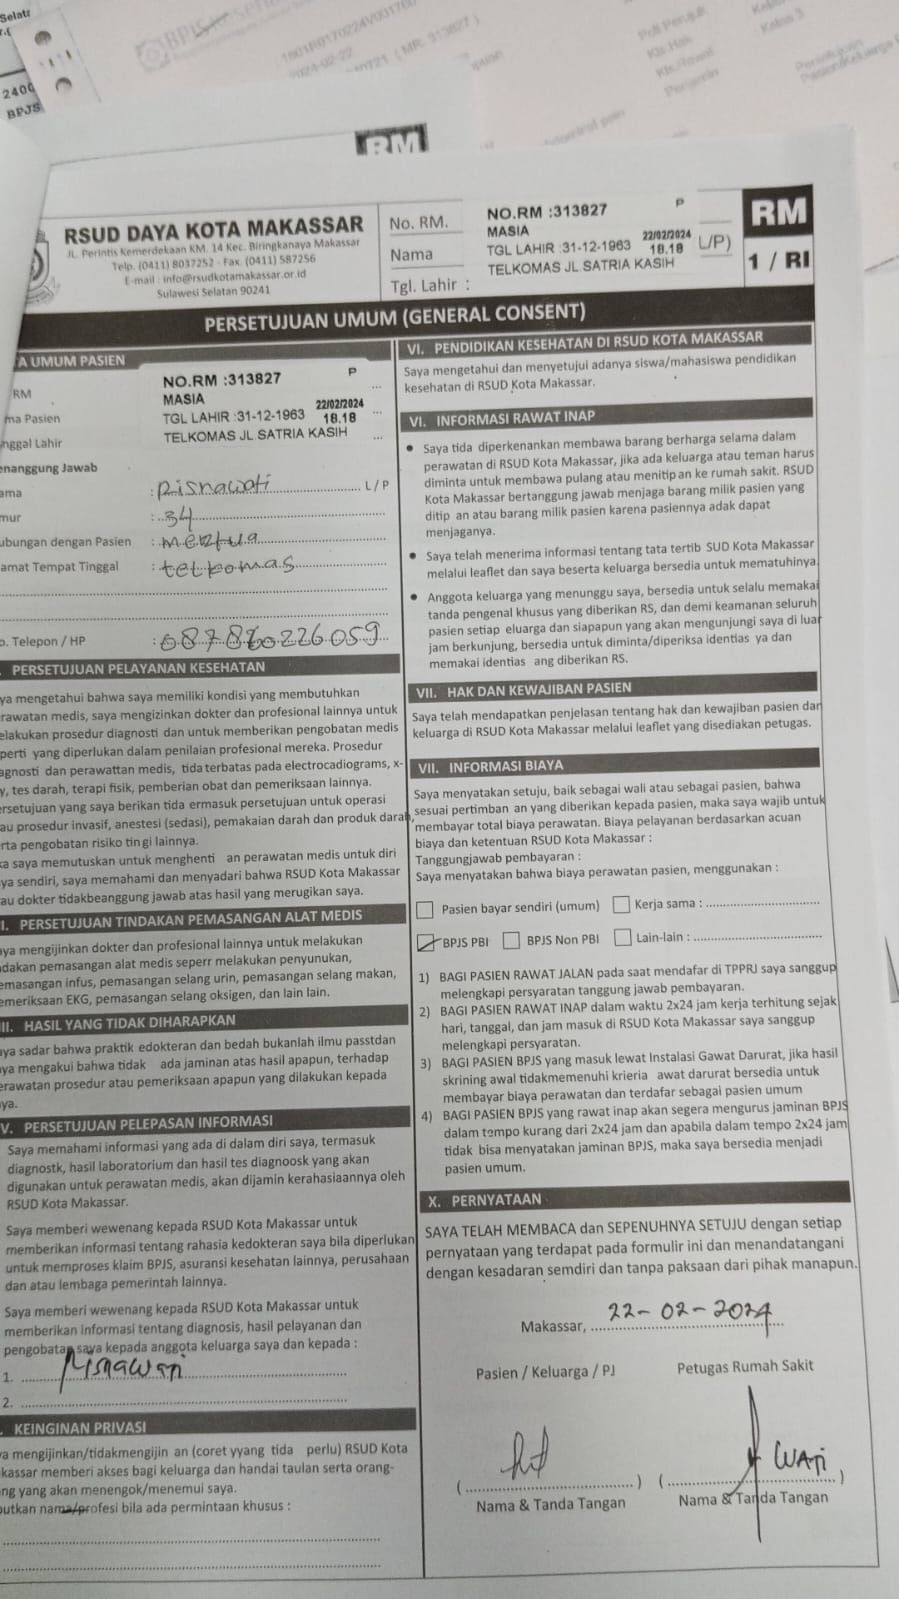 Selat
2400
BPJS
BPJS
2024-02-22
RM
RSUD DAYA KOTA MAKASSAR
JL. Perintis Kemerdekaan KM. 14 Kec. Biringkanaya Makassar
Telp. (0411) 8037252 - Fax. (0411) 587256
E-mail : info@rsudkotamakassar.or.id
Sulawesi Selatan 90241
No. RM.
Nama
Tgl. Lahir :
NO.RM :313827 P
MASIA 22/02/2024
TGL LAHIR :31-12-1963 18.18
TELKOMAS JL SATRIA KASIH
L/P)
RM
1 / RI
PERSETUJUAN UMUM (GENERAL CONSENT)
A UMUM PASIEN
RM
ma Pasien
nggal Lahir
NO.RM :313827 P
MASIA 22/02/2024
TGL LAHIR :31-12-1963 18.18
TELKOMAS JL SATRIA KASIH
enanggung Jawab
ama : Risnawati L / P
mur : 34
ubungan dengan Pasien : mertua
amat Tempat Tinggal : telkomas
o. Telepon / HP : 087860226059
. PERSETUJUAN PELAYANAN KESEHATAN
ya mengetahui bahwa saya memiliki kondisi yang membutuhkan
rawatan medis, saya mengizinkan dokter dan profesional lainnya untuk
elakukan prosedur diagnosti dan untuk memberikan pengobatan medis
perti yang diperlukan dalam penilaian profesional mereka. Prosedur
agnosti dan perawattan medis, tida terbatas pada electrocadiograms, x-
y, tes darah, terapi fisik, pemberian obat dan pemeriksaan lainnya.
ersetujuan yang saya berikan tida ermasuk persetujuan untuk operasi
au prosedur invasif, anestesi (sedasi), pemakaian darah dan produk darah,
rta pengobatan risiko tin gi lainnya.
ka saya memutuskan untuk menghenti an perawatan medis untuk diri
ya sendiri, saya memahami dan menyadari bahwa RSUD Kota Makassar
au dokter tidakbeanggung jawab atas hasil yang merugikan saya.
I. PERSETUJUAN TINDAKAN PEMASANGAN ALAT MEDIS
aya mengijinkan dokter dan profesional lainnya untuk melakukan
dakan pemasangan alat medis seperr melakukan penyunukan,
emasangan infus, pemasangan selang urin, pemasangan selang makan,
emeriksaan EKG, pemasangan selang oksigen, dan lain lain.
II. HASIL YANG TIDAK DIHARAPKAN
aya sadar bahwa praktik edokteran dan bedah bukanlah ilmu passtdan
ya mengakui bahwa tidak ada jaminan atas hasil apapun, terhadap
erawatan prosedur atau pemeriksaan apapun yang dilakukan kepada
ya.
V. PERSETUJUAN PELEPASAN INFORMASI
Saya memahami informasi yang ada di dalam diri saya, termasuk
diagnostk, hasil laboratorium dan hasil tes diagnoosk yang akan
digunakan untuk perawatan medis, akan dijamin kerahasiaannya oleh
RSUD Kota Makassar.
Saya memberi wewenang kepada RSUD Kota Makassar untuk
memberikan informasi tentang rahasia kedokteran saya bila diperlukan
untuk memproses klaim BPJS, asuransi kesehatan lainnya, perusahaan
dan atau lembaga pemerintah lainnya.
Saya memberi wewenang kepada RSUD Kota Makassar untuk
memberikan informasi tentang diagnosis, hasil pelayanan dan
pengobatan saya kepada anggota keluarga saya dan kepada :
1. Risnawati
2.
. KEINGINAN PRIVASI
ya mengijinkan/tidakmengijin an (coret yyang tida perlu) RSUD Kota
kassar memberi akses bagi keluarga dan handai taulan serta orang-
ng yang akan menengok/menemui saya.
butkan nama/profesi bila ada permintaan khusus :
VI. PENDIDIKAN KESEHATAN DI RSUD KOTA MAKASSAR
Saya mengetahui dan menyetujui adanya siswa/mahasiswa pendidikan
kesehatan di RSUD Kota Makassar.
VI. INFORMASI RAWAT INAP
• Saya tida diperkenankan membawa barang berharga selama dalam
perawatan di RSUD Kota Makassar, jika ada keluarga atau teman harus
diminta untuk membawa pulang atau menitip an ke rumah sakit. RSUD
Kota Makassar bertanggung jawab menjaga barang milik pasien yang
ditip an atau barang milik pasien karena pasiennya adak dapat
menjaganya.
• Saya telah menerima informasi tentang tata tertib SUD Kota Makassar
melalui leaflet dan saya beserta keluarga bersedia untuk mematuhinya
• Anggota keluarga yang menunggu saya, bersedia untuk selalu memakai
tanda pengenal khusus yang diberikan RS, dan demi keamanan seluruh
pasien setiap eluarga dan siapapun yang akan mengunjungi saya di luar
jam berkunjung, bersedia untuk diminta/diperiksa identias ya dan
memakai identias ang diberikan RS.
VII. HAK DAN KEWAJIBAN PASIEN
Saya telah mendapatkan penjelasan tentang hak dan kewajiban pasien dan
keluarga di RSUD Kota Makassar melalui leaflet yang disediakan petugas.
VII. INFORMASI BIAYA
Saya menyatakan setuju, baik sebagai wali atau sebagai pasien, bahwa
sesuai pertimban an yang diberikan kepada pasien, maka saya wajib untuk
membayar total biaya perawatan. Biaya pelayanan berdasarkan acuan
biaya dan ketentuan RSUD Kota Makassar :
Tanggungjawab pembayaran :
Saya menyatakan bahwa biaya perawatan pasien, menggunakan :
Pasien bayar sendiri (umum) Kerja sama :
BPJS PBI BPJS Non PBI Lain-lain :
1) BAGI PASIEN RAWAT JALAN pada saat mendafar di TPPRJ saya sanggup
melengkapi persyaratan tanggung jawab pembayaran.
2) BAGI PASIEN RAWAT INAP dalam waktu 2x24 jam kerja terhitung sejak
hari, tanggal, dan jam masuk di RSUD Kota Makassar saya sanggup
melengkapi persyaratan.
3) BAGI PASIEN BPJS yang masuk lewat Instalasi Gawat Darurat, jika hasil
skrining awal tidakmemenuhi krieria awat darurat bersedia untuk
membayar biaya perawatan dan terdafar sebagai pasien umum
4) BAGI PASIEN BPJS yang rawat inap akan segera mengurus jaminan BPJS
dalam tempo kurang dari 2x24 jam dan apabila dalam tempo 2x24 jam
tidak bisa menyatakan jaminan BPJS, maka saya bersedia menjadi
pasien umum.
X. PERNYATAAN
SAYA TELAH MEMBACA dan SEPENUHNYA SETUJU dengan setiap
pernyataan yang terdapat pada formulir ini dan menandatangani
dengan kesadaran semdiri dan tanpa paksaan dari pihak manapun.
Makassar, 22-02-2024
Pasien / Keluarga / PJ Petugas Rumah Sakit
WATI
Nama & Tanda Tangan Nama & Tanda Tangan